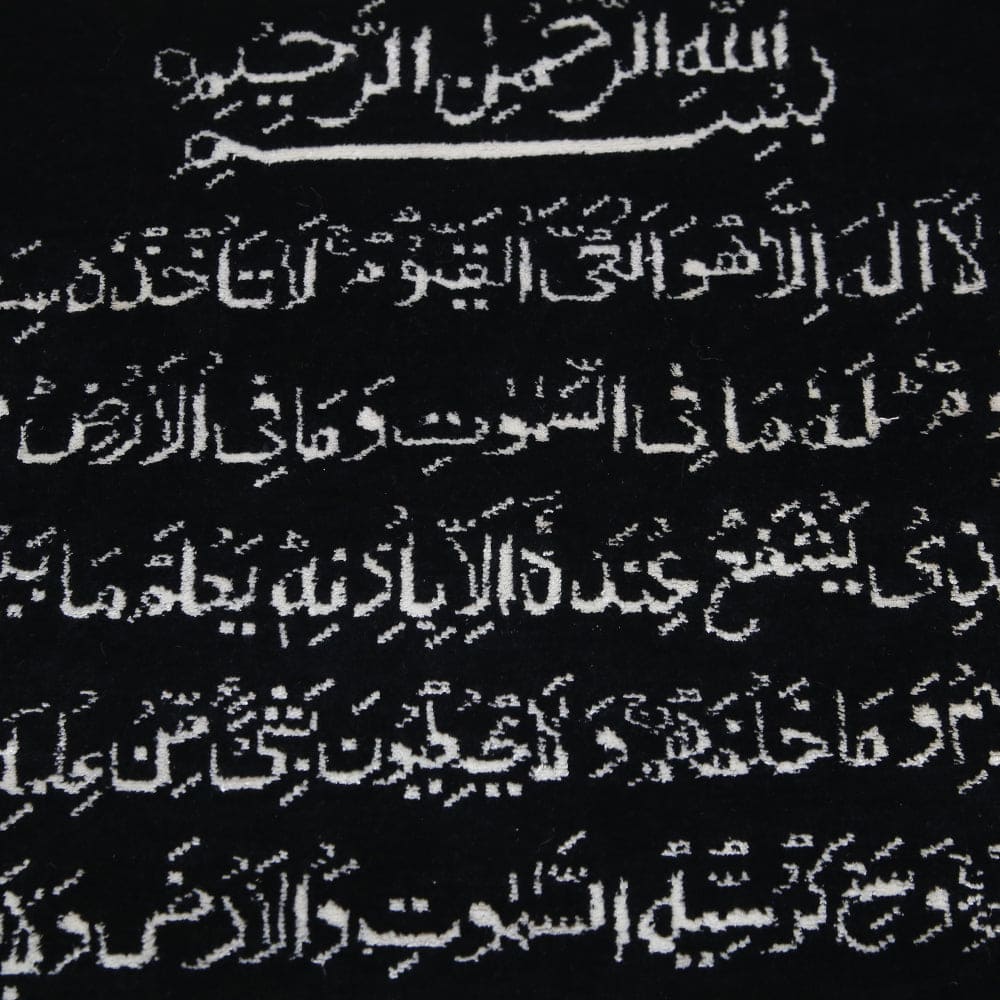 بِسْمِ اللّٰهِ الرَّحْمٰنِ الرَّحِيْمِ
لَآ اِلٰهَ اِلَّا هُوَ الْحَيُّ الْقَيُّوْمُ لَا تَاْخُذُهٗ
لَهٗ مَا فِي السَّمٰوٰتِ وَمَا فِي الْاَرْضِ
يَشْفَعُ عِنْدَهٗٓ اِلَّا بِاِذْنِهٖ يَعْلَمُ مَا
وَمَا خَلْفَهُمْ وَلَا يُحِيْطُوْنَ بِشَيْءٍ مِّنْ
وَسِعَ كُرْسِيُّهُ السَّمٰوٰتِ وَالْاَرْضَ